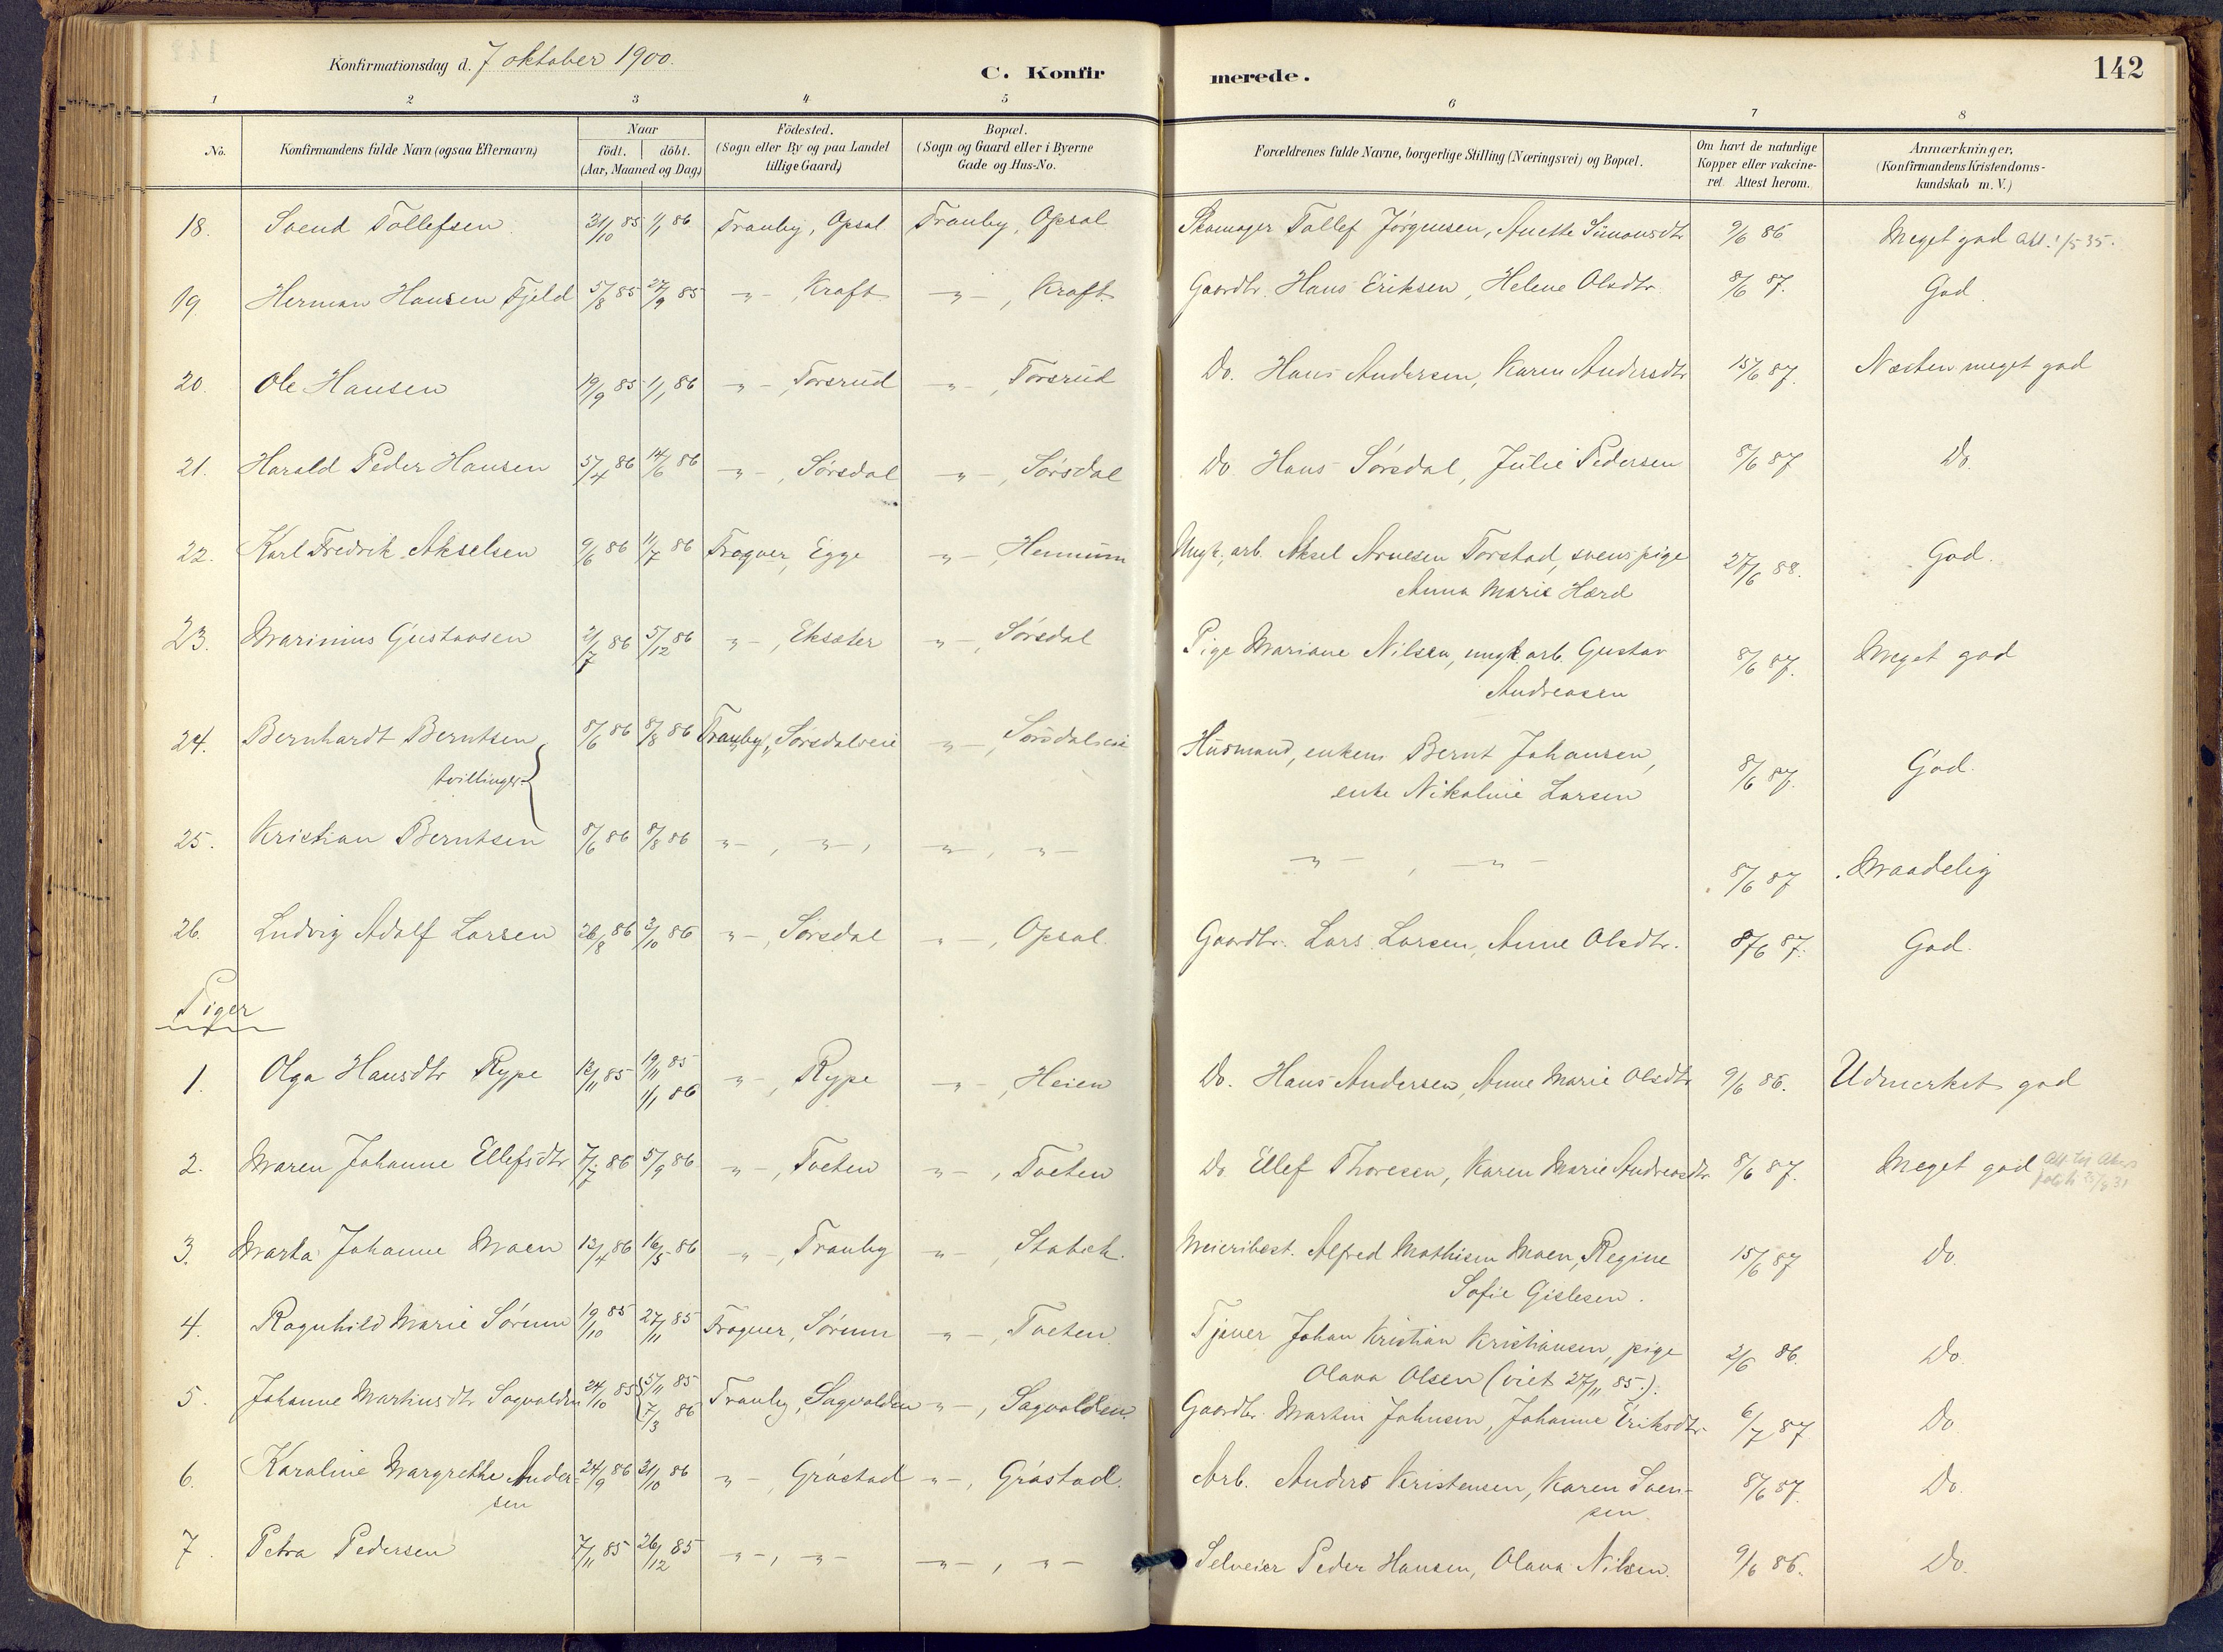 Konfirmationsdag d. 7 oktober 1900.
C. Konfirmerede.
142
1 2 3 4 5 6 7 8
No.
Konfirmandens fulde Navn (ogsaa Efternavn)
Naar
födt. döbt.
(Aar, Maaned og Dag)
Födested.
(Sogn eller By og paa Landet
tillige Gaard)
Bopæl.
(Sogn og Gaard eller i Byerne
Gade og Hus-No.
Forældrenes fulde Navne, borgerlige Stilling (Næringsvei) og Bopæl.
Om havt de naturlige
Kopper eller vakcine-
ret. Attest herom.
Anmærkninger,
(Konfirmandens Kristendoms-
kundskab m. V.)
18. Svend Tollefsen. 31/10 85 1/1 86 Tranby, Opsal Tranby, Opsal Skomager Tollef Jørgensen, Anette Simonsdtr 9/6 86 Meget god att. 1/5 35.
19. Herman Hansen Fjeld 5/8 85 27/9 85 -"-, Kraft -"-, Kraft. Gaardbr. Hans Eriksen, Helene Olsdtr. 8/6 87. God.
20. Ole Hansen 19/9 85 1/1 86 -"-, Torsrud -"-, Torsrud Do. Hans Andersen, Karen Andersdtr 15/6 87. Næsten meget god
21. Harald Peder Hansen 5/4 86 14/6 86 -"-, Sørsdal -"-, Sørsdal Do. Hans Sørsdal, Julie Pedersen 8/6 87 Do.
22. Karl Fredrik Akselsen 9/6 86 11/7 86 Frogner, Egge -"-, Hennum Ungk. arb. Aksel Arnesen Torstad, svensk pige 27/6 88. God.
Anna Marie Hard
23. Marinius Gustavsen 2/7 86 5/12 86 -"-, Eksæter -"-, Sørsdal Pige Mariane Nilsen, ungk. arb. Gustav 8/6 87. Meget god
Andreasen
24. Bernhardt Berntsen 8/6 86 8/8 86 Tranby, Sørsdalveie -"-, Sørsdalseie Husmand, enkem. Bernt Johansen, 8/6 87. God.
tvillinger
enke Nikoline Larsen
25. Kristian Berntsen 8/6 86 8/8 86 -"-, -"-, -"-, -"- -"-, -"- 8/6 87 Maadelig
26. Ludvig Adolf Larsen 26/8 86 3/10 86 -"-, Sørsdal -"-, Opsal. Gaardbr. Lars Larsen, Anne Olsdtr. 8/6 87. God.
Piger
1. Olga Hansdtr Rype 12/11 85 19/11 85 -"-, Rype -"-, Heien Do. Hans Andersen, Anne Marie Olsdtr 9/6 86. Udmerket god
1/1 86
2. Maren Johanne Ellefsdtr 7/7 86 5/9 86 -"-, Tveten -"-, Tveten Do. Ellef Thoresen, Karen Marie Andreasdtr. 8/6 87. Meget god
3. Marta Johanne Moen 12/4 86 16/5 86 -"-, Tranby -"-, Stabæk. Meieribest. Alfred Mathisen Moen, Regine 15/6 87 Do.
Sofie Gislesen.
4. Ragnhild Marie Sørum 19/10 85 27/11 85 Frogner, Sørum -"-, Tveten Tjener Johan Kristian Kristiansen, pige 2/6 86. Do.
Olava Olsen (viet 27/11 85).
5. Johanne Martinsdtr Sagvolden 24/10 85 5/11 85 Tranby, Sagvolden -"-, Sagvolden. Gaardbr. Martin Johnsen, Johanne Eriksdtr. 6/7 87 Do
7/3 86
6. Karoline Margrethe Ander- 24/9 86 31/10 86 -"-, Gråstad -"-, Gråstad. Arb. Anders Kristensen, Karen Sven- 8/6 87. Do.
sen sen.
7. Petra Pedersen 7/11 85 26/12 85 -"-, -"- -"-, -"- Selveier Peder Hansen, Olava Nilsen. 9/6 86. Do.